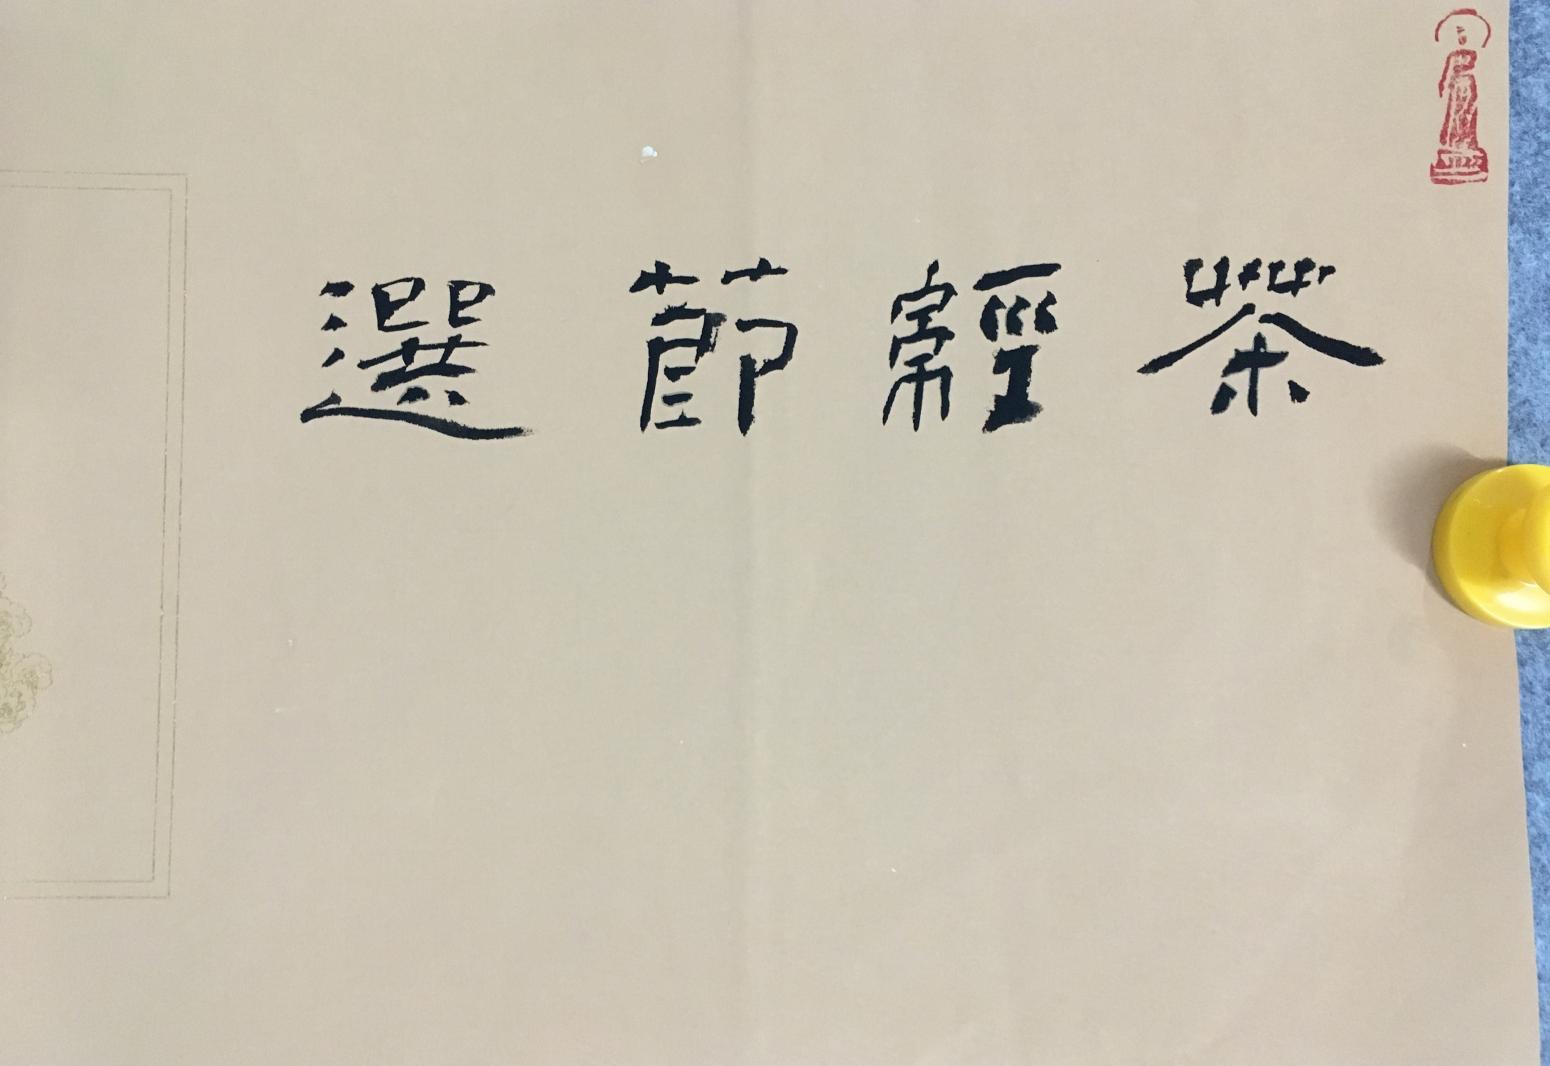 茶經節選